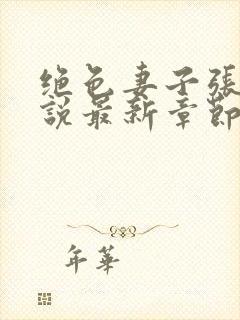 绝色妻子張
說最新章節
年華